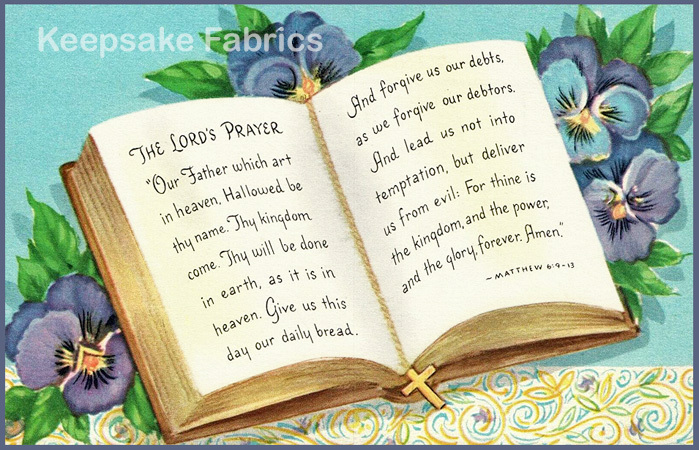 Keepsake Fabrics
THE LORD'S PRAYER
"Our Father which art
in heaven, Hallowed be
thy name. Thy kingdom
come. Thy will be done
in earth, as it is in
heaven. Give us this
day our daily bread.
And forgive us our debts,
as we forgive our debtors.
And lead us not into
temptation, but deliver
us from evil: For thine is
the kingdom, and the power,
and the glory, forever. Amen."
—MATTHEW 6:9-13